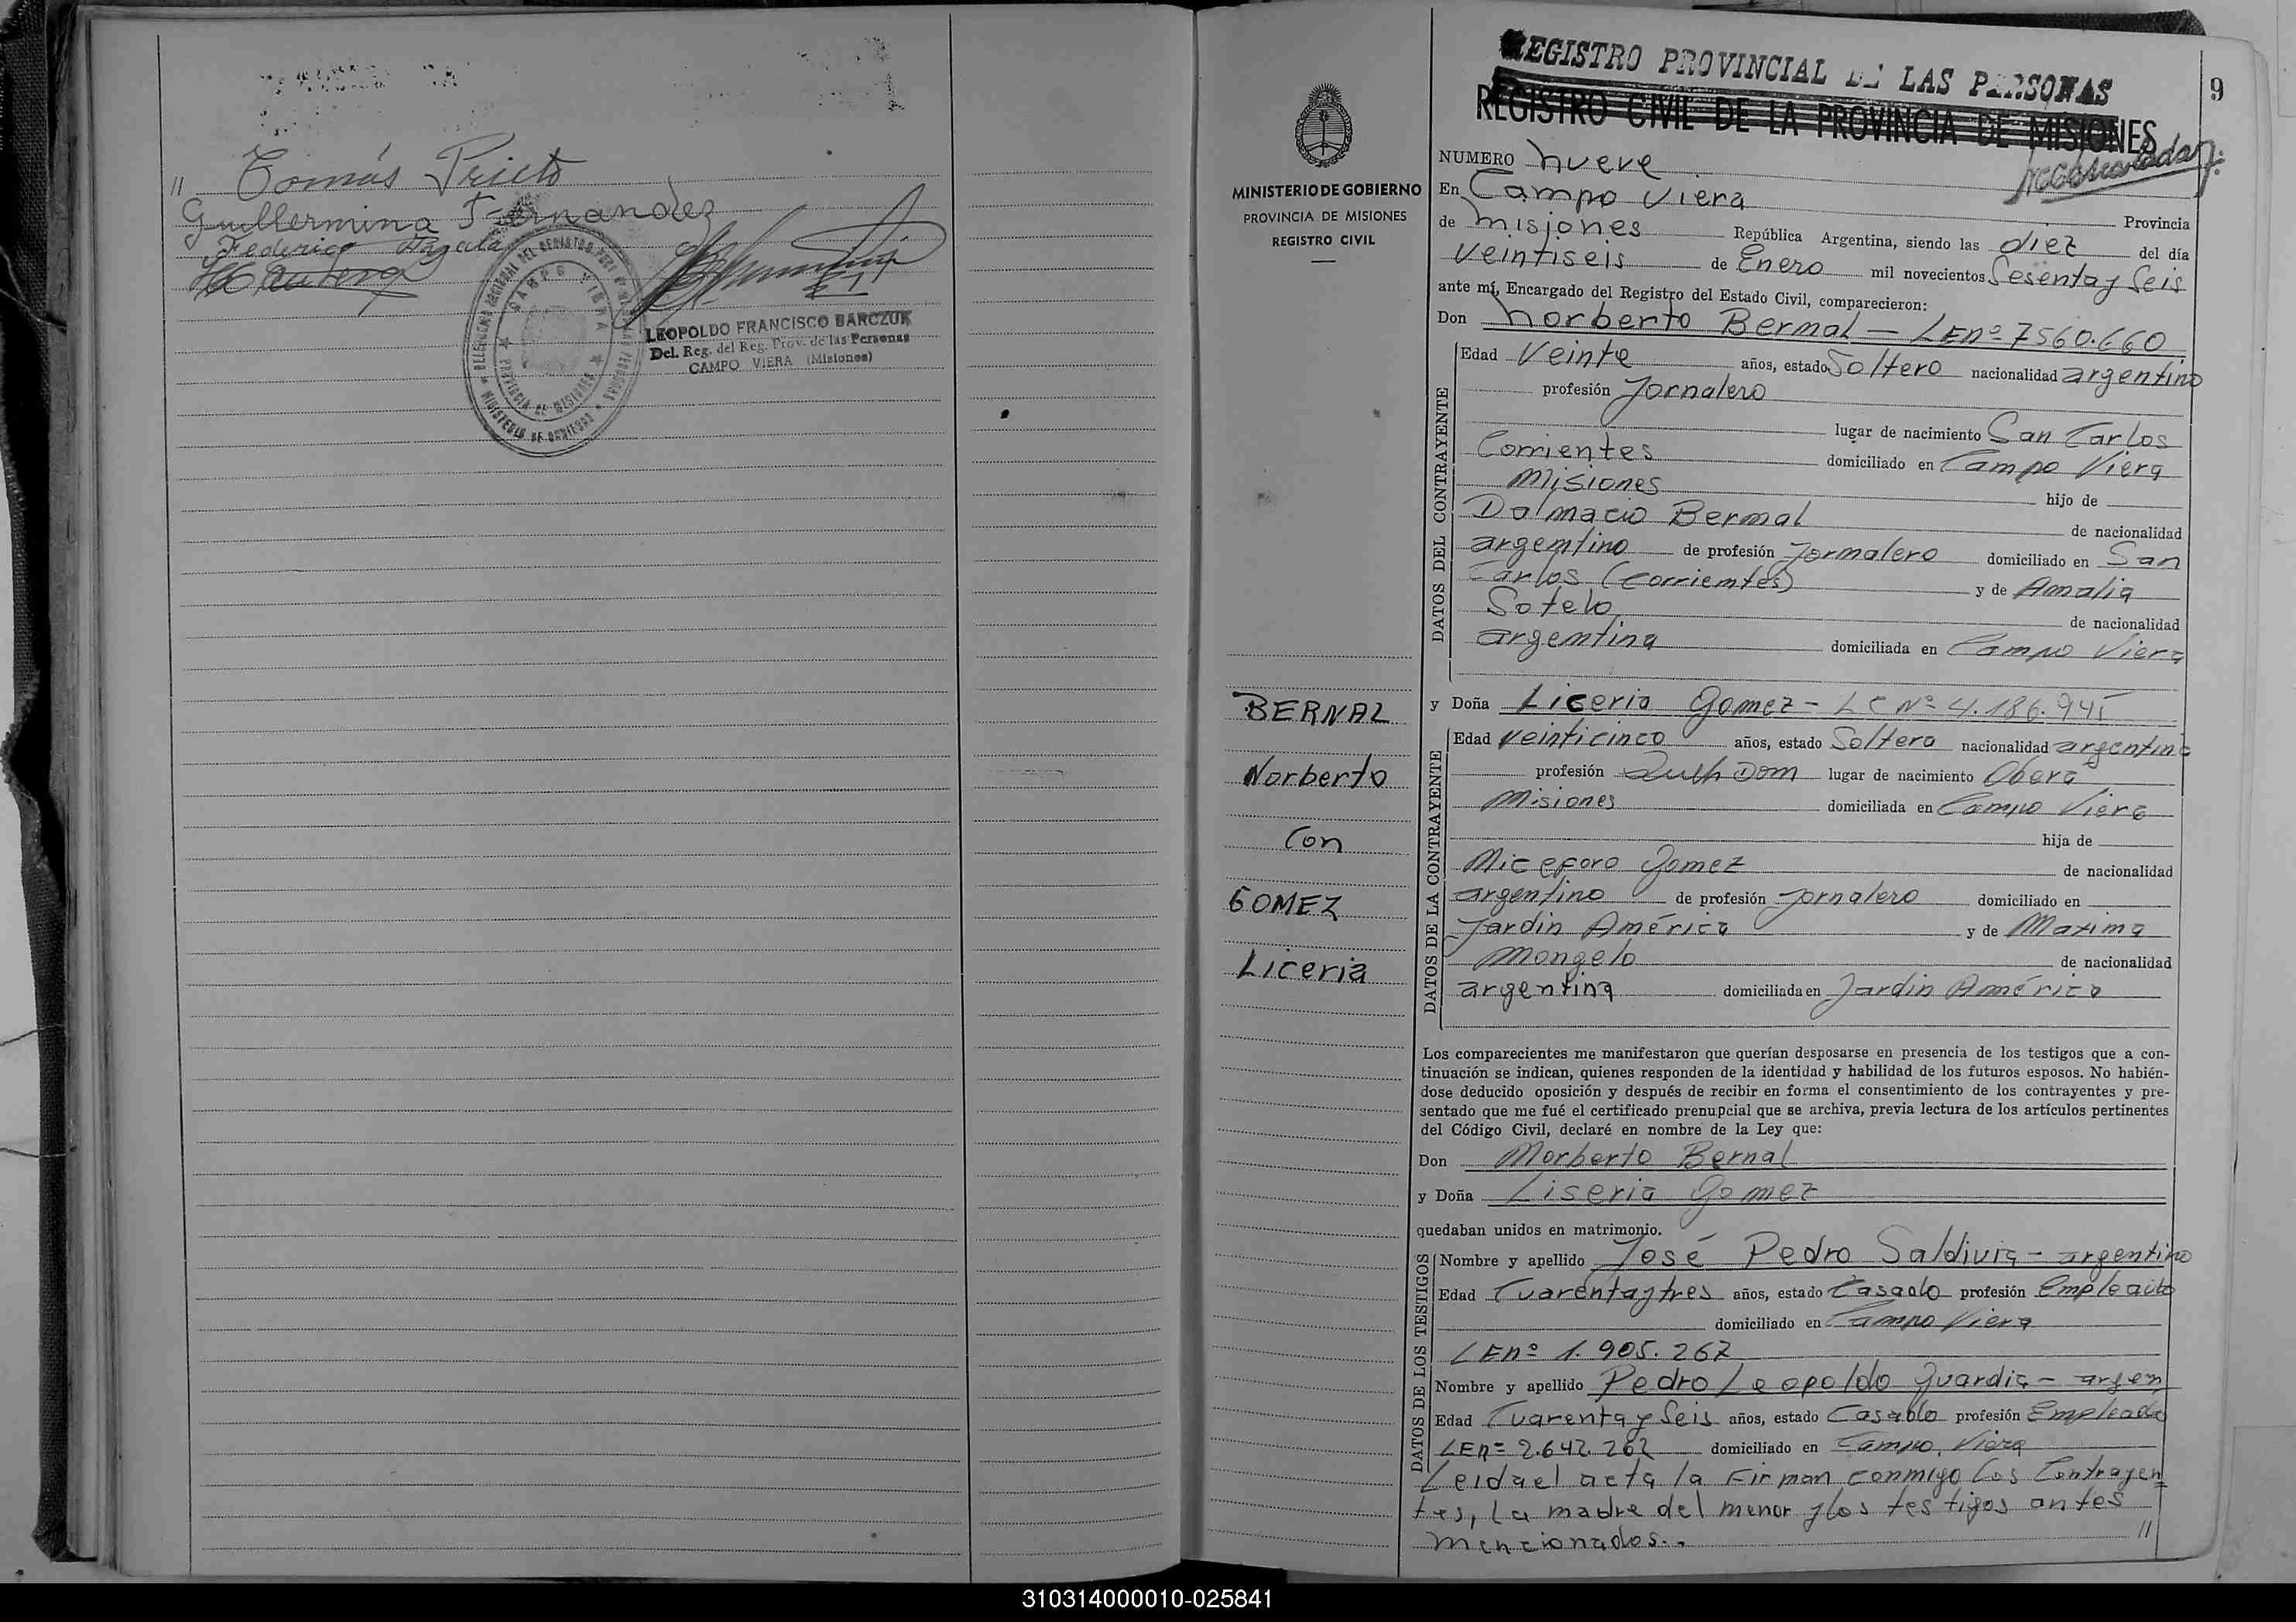 // Tomás Prieto
Guillermina Fernandez
Federico
LEOPOLDO FRANCISCO BARCZUK
Del. Reg. del Reg. Prov. de las Personas
CAMPO VIERA (Misiones)
CAMPO VIERA
PROVINCIA DE MISIONES
MINISTERIO DE GOBIERNO
PROVINCIA DE MISIONES
REGISTRO CIVIL
BERNAL
Norberto
Con
GOMEZ
Liceria
REGISTRO PROVINCIAL DE LAS PERSONAS
9
REGISTRO CIVIL DE LA PROVINCIA DE MISIONES
NUMERO nueve
En Campo Viera Provincia
de Misiones República Argentina, siendo las diez del día
veintiseis de Enero mil novecientos Sesenta y Seis
ante mí, Encargado del Registro del Estado Civil, comparecieron:
Don Norberto Bernal - LEnº 7560.660
DATOS DEL CONTRAYENTE
Edad Veinte años, estado Soltero nacionalidad argentino
profesión Jornalero
lugar de nacimiento San Carlos
Corrientes domiciliado en Campo Viera
Misiones hijo de
Dalmacio Bernal de nacionalidad
argentino de profesión Jornalero domiciliado en San
Carlos (Corrientes) y de Amalia
Sotelo de nacionalidad
argentina domiciliada en Campo Viera
y Doña Liceria Gomez - LC Nº 4.186.945
DATOS DE LA CONTRAYENTE
Edad veinticinco años, estado Soltera nacionalidad argentina
profesión Dom lugar de nacimiento Obera
Misiones domiciliada en Campo Viera
hija de
Niceforo Gomez de nacionalidad
argentino de profesión Jornalero domiciliado en
Jardin América y de Maxima
Mongelo de nacionalidad
argentina domiciliada en Jardin América
Los comparecientes me manifestaron que querían desposarse en presencia de los testigos que a con-
tinuación se indican, quienes responden de la identidad y habilidad de los futuros esposos. No habién-
dose deducido oposición y después de recibir en forma el consentimiento de los contrayentes y pre-
sentado que me fué el certificado prenupcial que se archiva, previa lectura de los artículos pertinentes
del Código Civil, declaré en nombre de la Ley que:
Don Norberto Bernal
y Doña Liseria Gomez
quedaban unidos en matrimonio.
DATOS DE LOS TESTIGOS
Nombre y apellido José Pedro Saldivia - argentino
Edad Cuarenta y tres años, estado Casado profesión Empleado
domiciliado en Campo Viera
LEnº 1.905.267
Nombre y apellido Pedro Leopoldo Guardia - argen
Edad Cuarenta y Seis años, estado Casado profesión Empleado
LEnº 2.642.262 domiciliado en Campo Viera
Leida el acta la Firman conmigo los Contrayen=
tes, la madre del menor y los testigos antes
mencionados.. //
310314000010-025841